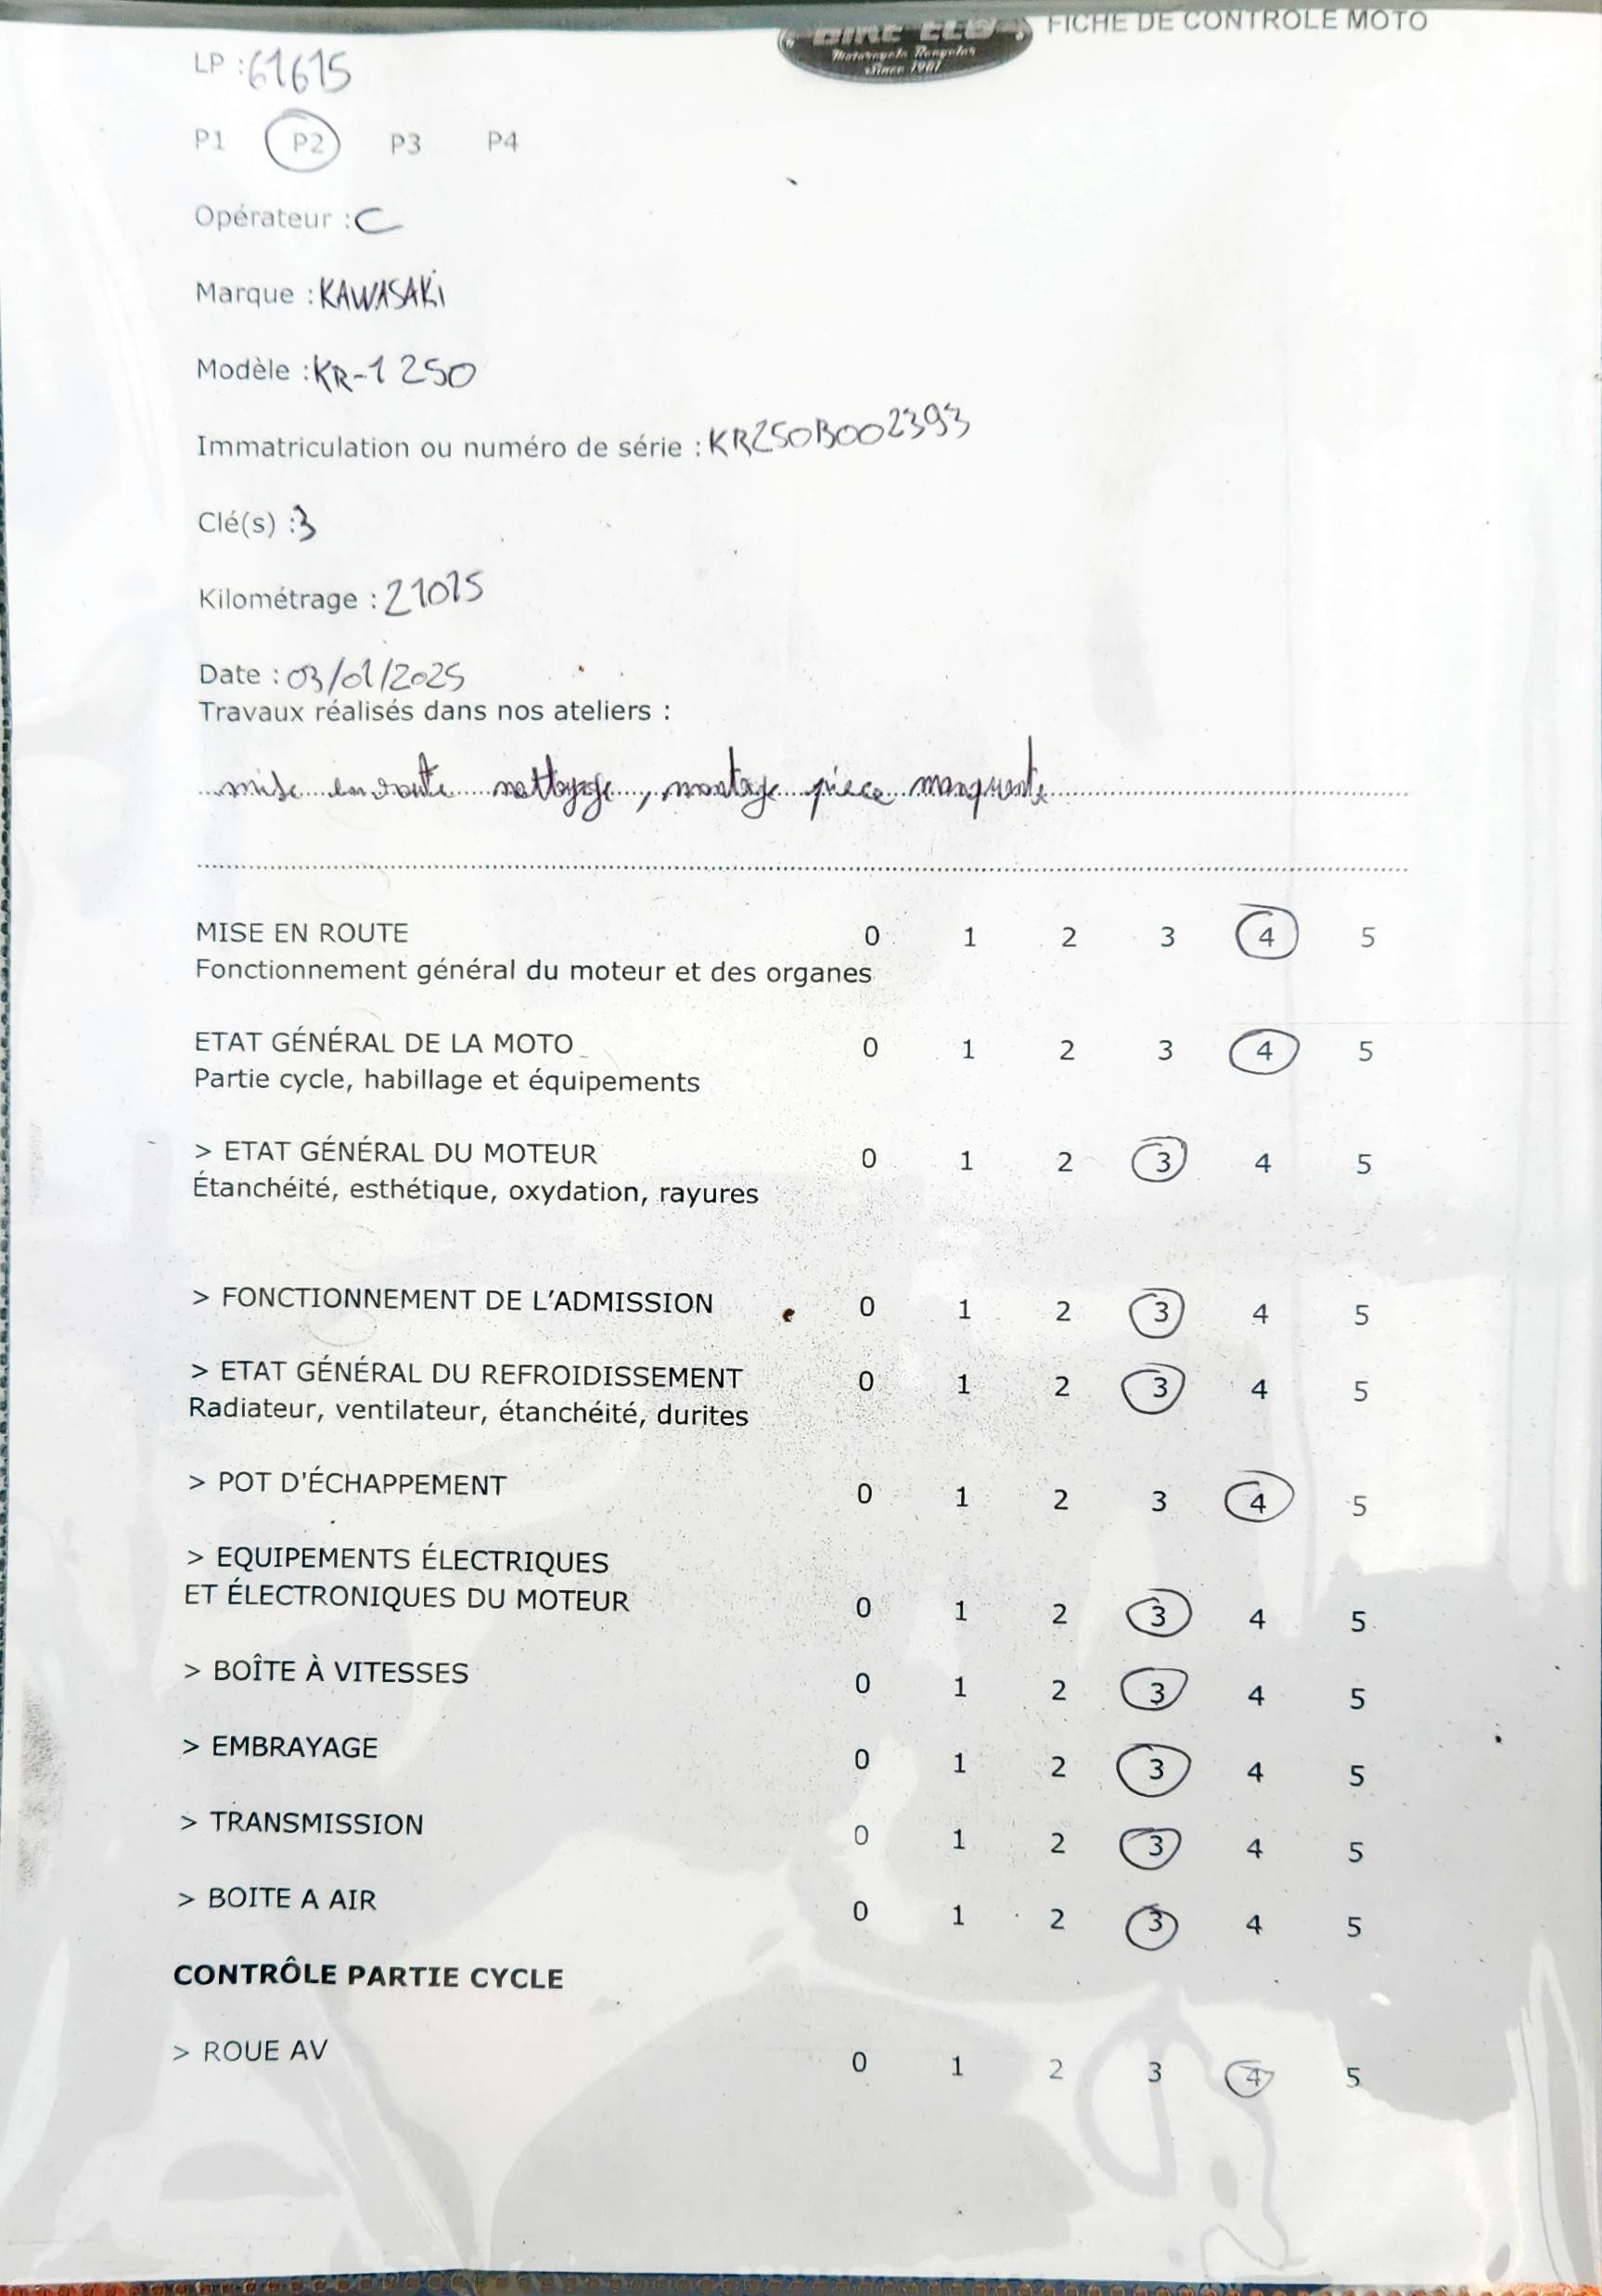 BIKE ECO FICHE DE CONTROLE MOTO
Motorcycle Recycler
Since 1981
LP :61615
P1 P2 P3 P4
Opérateur : C
Marque : KAWASAKi
Modèle : KR-1 250
Immatriculation ou numéro de série : KR250B002393
Clé(s) :3
Kilométrage : 21015
Date : 03/01/2025
Travaux réalisés dans nos ateliers :
mise en route nettoyage, montage pièce manquante
MISE EN ROUTE 0 1 2 3 4 5
Fonctionnement général du moteur et des organes
ETAT GÉNÉRAL DE LA MOTO 0 1 2 3 4 5
Partie cycle, habillage et équipements
> ETAT GÉNÉRAL DU MOTEUR 0 1 2 3 4 5
Étanchéité, esthétique, oxydation, rayures
> FONCTIONNEMENT DE L'ADMISSION 0 1 2 3 4 5
> ETAT GÉNÉRAL DU REFROIDISSEMENT 0 1 2 3 4 5
Radiateur, ventilateur, étanchéité, durites
> POT D'ÉCHAPPEMENT 0 1 2 3 4 5
> EQUIPEMENTS ÉLECTRIQUES
ET ÉLECTRONIQUES DU MOTEUR 0 1 2 3 4 5
> BOÎTE À VITESSES 0 1 2 3 4 5
> EMBRAYAGE 0 1 2 3 4 5
> TRANSMISSION 0 1 2 3 4 5
> BOITE A AIR 0 1 2 3 4 5
CONTRÔLE PARTIE CYCLE
> ROUE AV 0 1 2 3 4 5